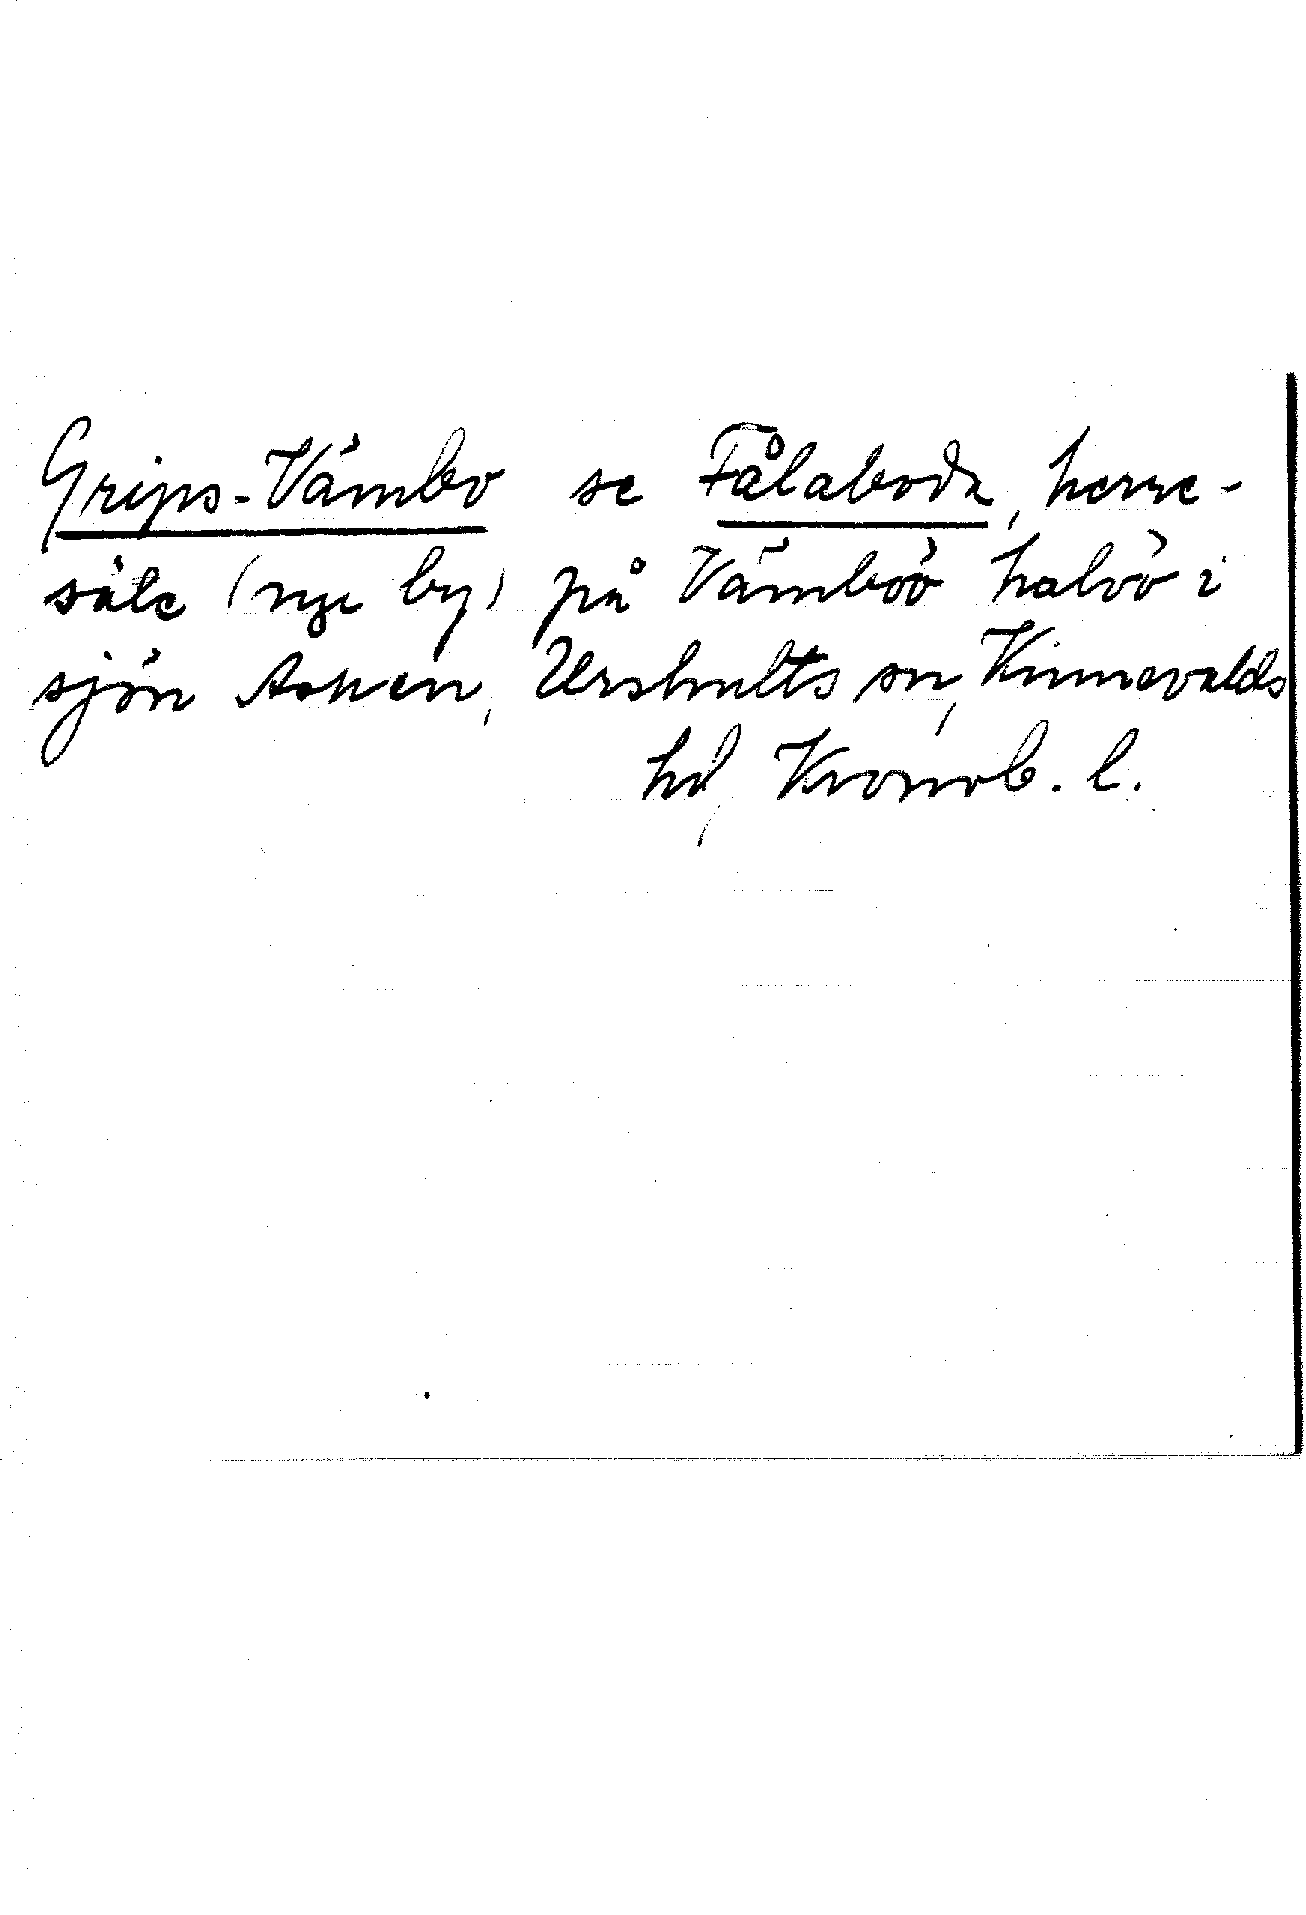 Grips-Vämbo se Fålaboda, herre-
säte (nu by) på Vämböö halvö i
sjön Asnen, Urshults sn, Kinnevalds
hd, Kronob. l.